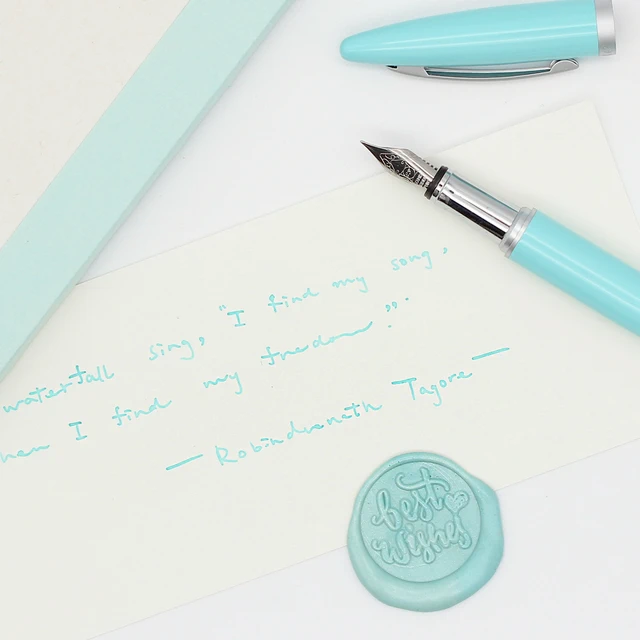 waterfall sing, "I find my song,
when I find my freedom".
— Rabindranath Tagore —
best
wishes